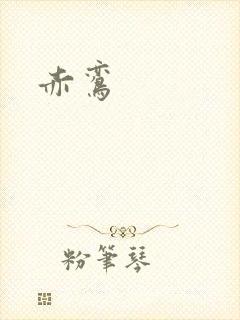 赤鸞
粉筆琴